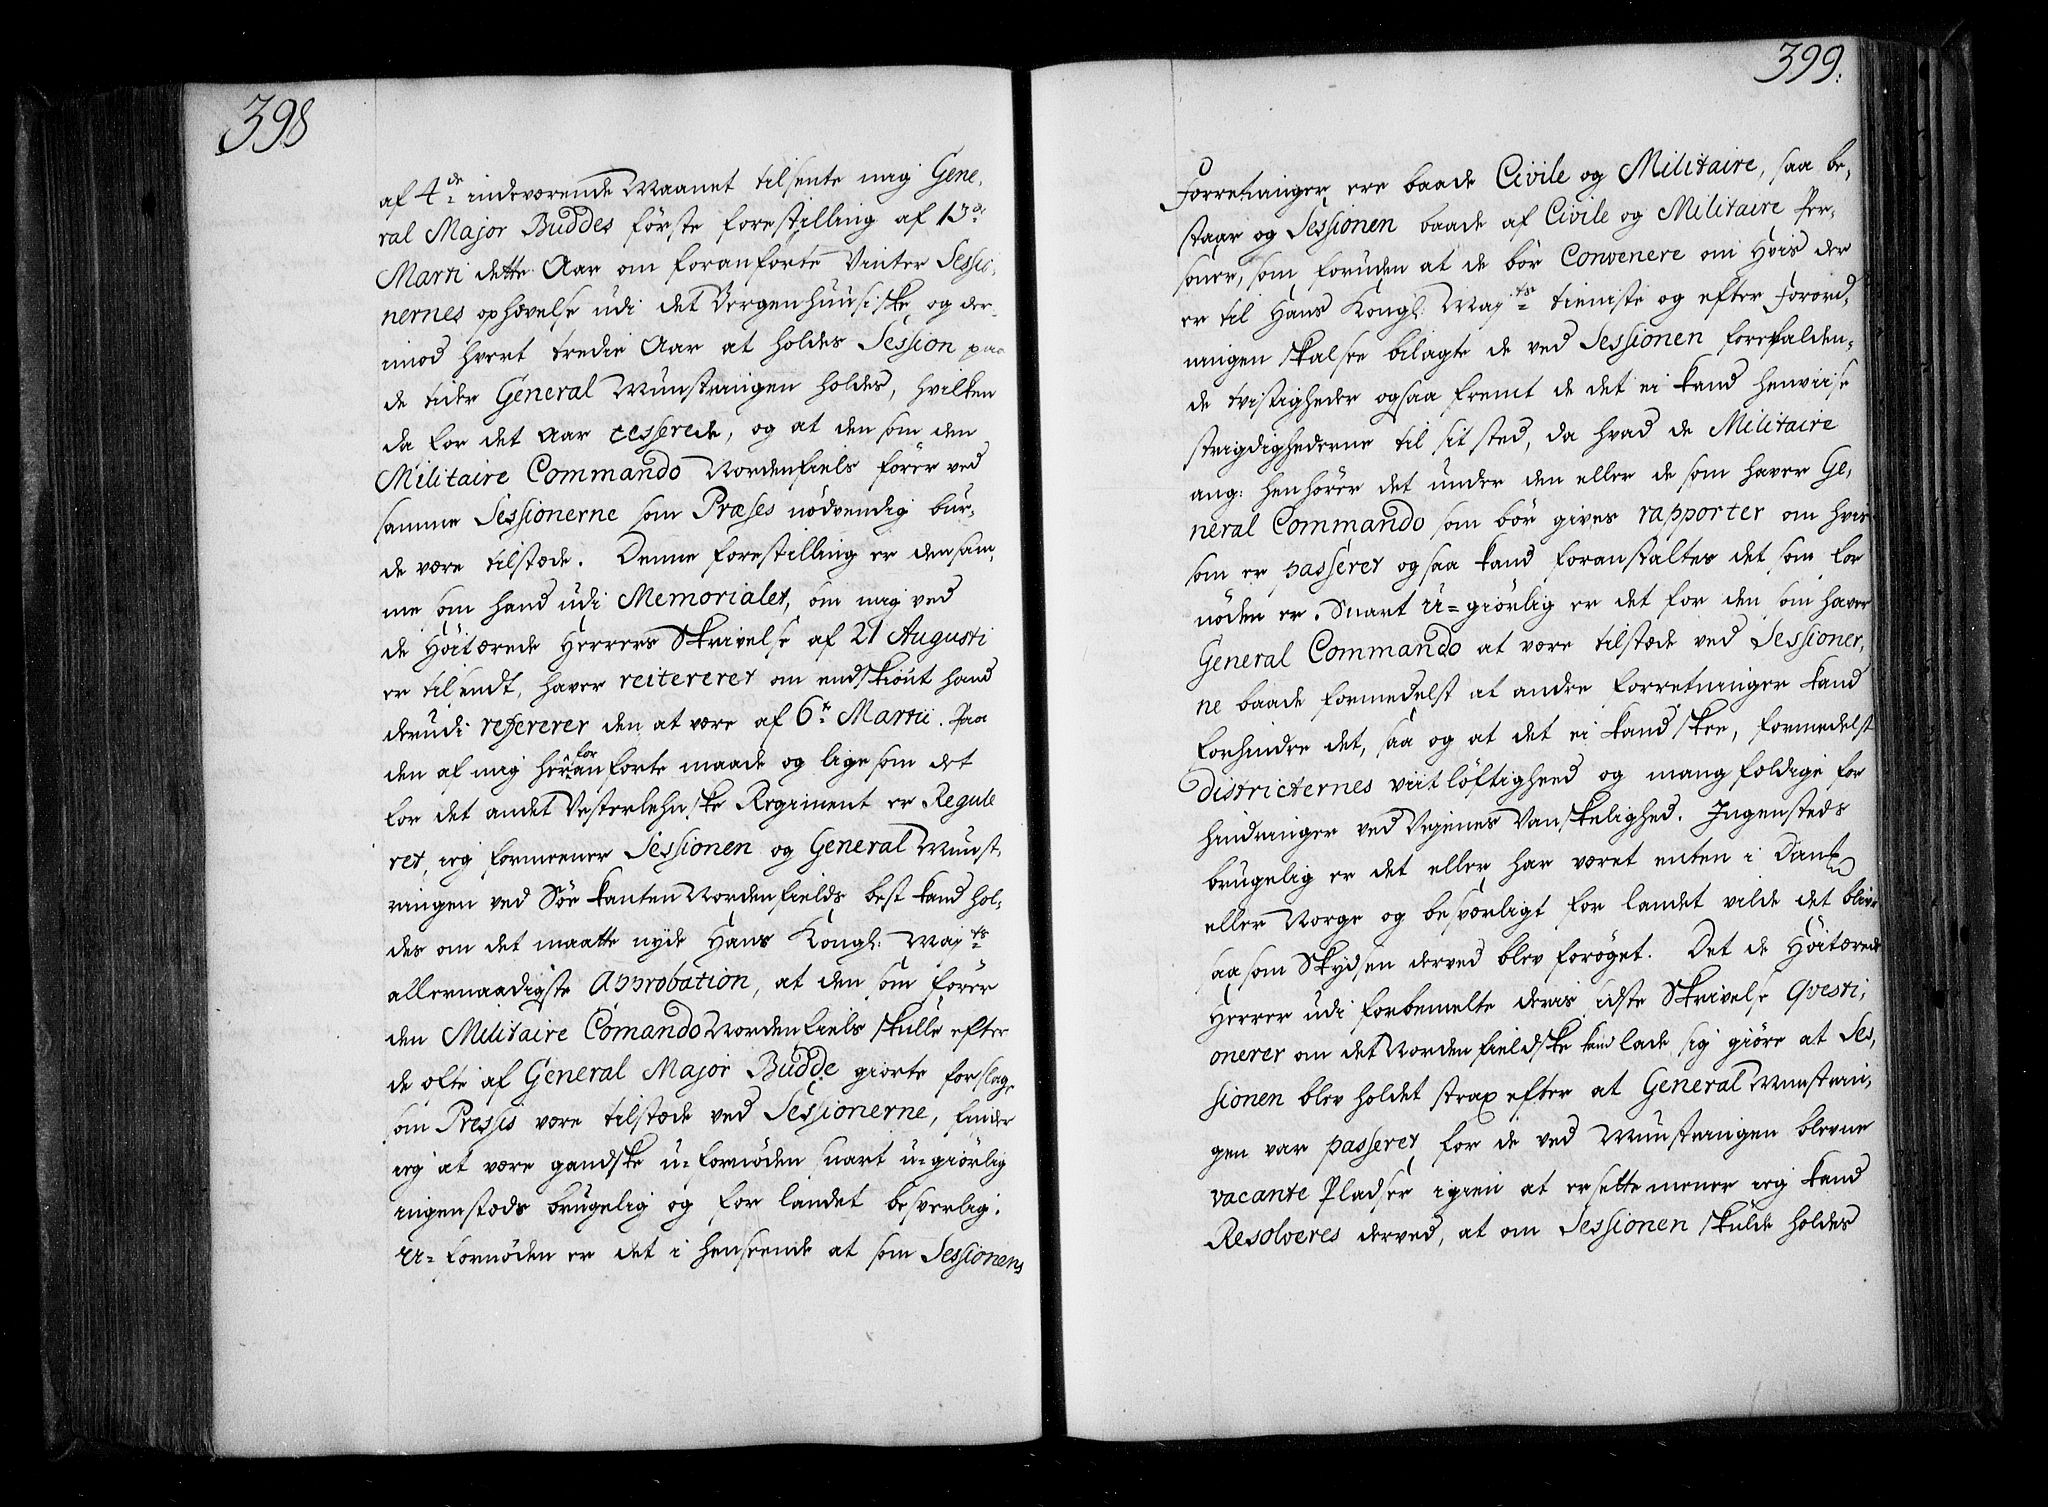 398
af 4de indeværende Maanet tilsente mig Gene,
ral Major Buddes første forestilling af 13de
Marti dette Aar om foranførte Vinter Sessio,
nernes ophævelse udi det Bergenhuusiske, og der,
imod hvert tredie Aar at holdes Session paa
de tider General Mynstringen holdes, hvilken
da for det Aar cesserede, og at den som den
Militaire Commando Nordenfiels fører ved
samme Sessionerne som Præses nødvendig bur,
de være tilstæde. Denne forestilling er densam,
me som hand udi Memorialet, om mig ved
de Høitærede Herrers Skrivelse af 21 Augusti
er tilsendt, haver reitereret om endskiønt hand
derudi refererer den at være af 6te Martii. Paa
den af mig her foranførte maade og lige som det
for det andet Vesterlehnske Regiment er Regule
ret, ieg formeener Sessionen og General Mynst,
ringen ved Søe kanten Nordenfields best kand hol,
des om det maatte nyde Hans Kongl: Majts
allernaadigste Approbation, at den som fører
den Militaire Comando Nordenfiels skulle efter
de ofte af General Major Budde giorte forslag,
som Pressis være tilstæde ved Sessionerne, finder
ieg at være gandske u-fornøden snart u-giørlig
ingenstæds brugelig og for landet besverlig.
U-fornøden er det i henseende at som Sessionens
399.
Forretninger ere baade Civile og Militaire, saa be,
staar og Sessionen baade af Civile og Militaire Per,
soner, som foruden at de bør Convenere om hvis der
er til Hans Kongl: Majts tieniste og efter Forord,
ningen skal see bilagte de ved Sessionen forefalden,
de tvistigheder ogsaa fremt de det ei kand henviise
strigdighederne til sit sted, da hvad de Militaire
ang: henhører det under den eller de som haver Ge,
neral Commando som bør gives rapporter om hvis
som er passeret ogsaa kand foranstaltes det som for
nøden er. Snart U-giørlig er det for den som haver
General Commando at være tilstæde ved Sessioner,
ne baade formedelst at andre forretninger kand
forhindre det, saa og at det ei kand skee, formedelst
Districternes viitløftighed og mangfoldige for
hindringer ved Vejenes Vanskelighed. Ingensteds
brugelig er det eller har været enten i Dank
eller Norge og besværligt for landet vilde det blive
saasom Skydsen derved blev forøget. Det de Høitærede
Herrer udi forbemelte deris sidste Skrivelse Qvesti,
onerer om det Nordenfieldske kand lade sig giøre at Ses,
sionen blev holdet strax efter at General Mynstrin,
gen var passeret for de ved Mynstringen blevne
vacante Pladser igien at ersette mener ieg kand
Resolveres derved, at om Sessionen skulde holdes